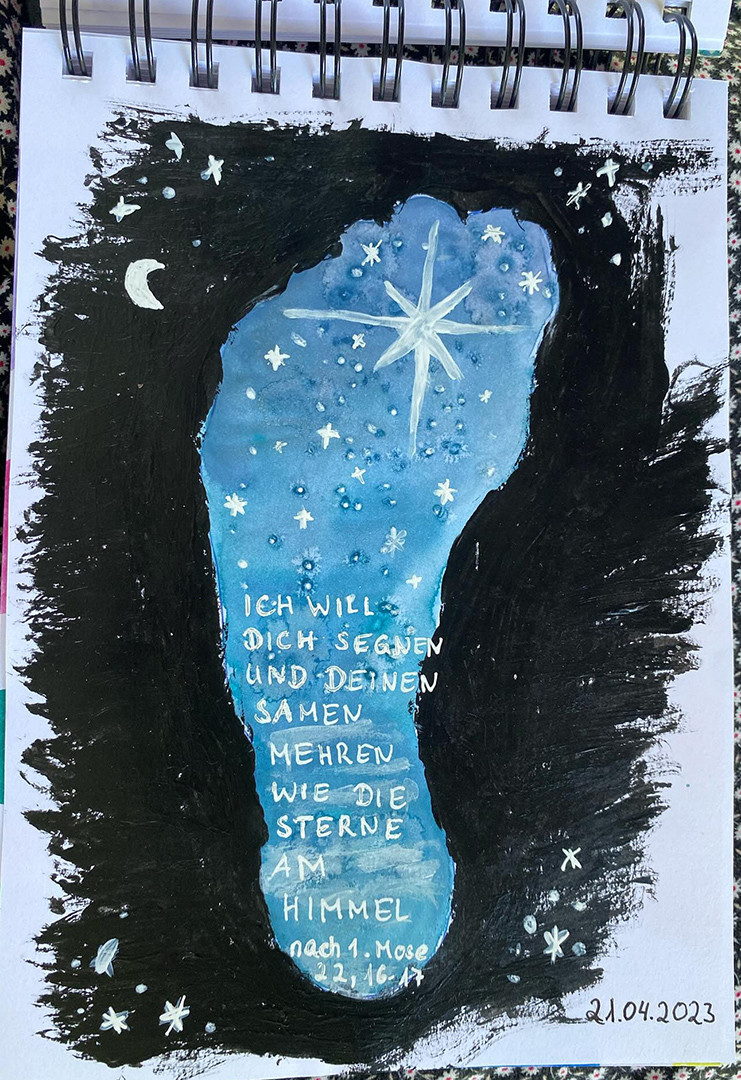 ICH WILL
DICH SEGNEN
UND DEINEN
SAMEN
MEHREN
WIE DIE
STERNE
AM
HIMMEL
nach 1. Mose
22, 16-17
21.04.2023